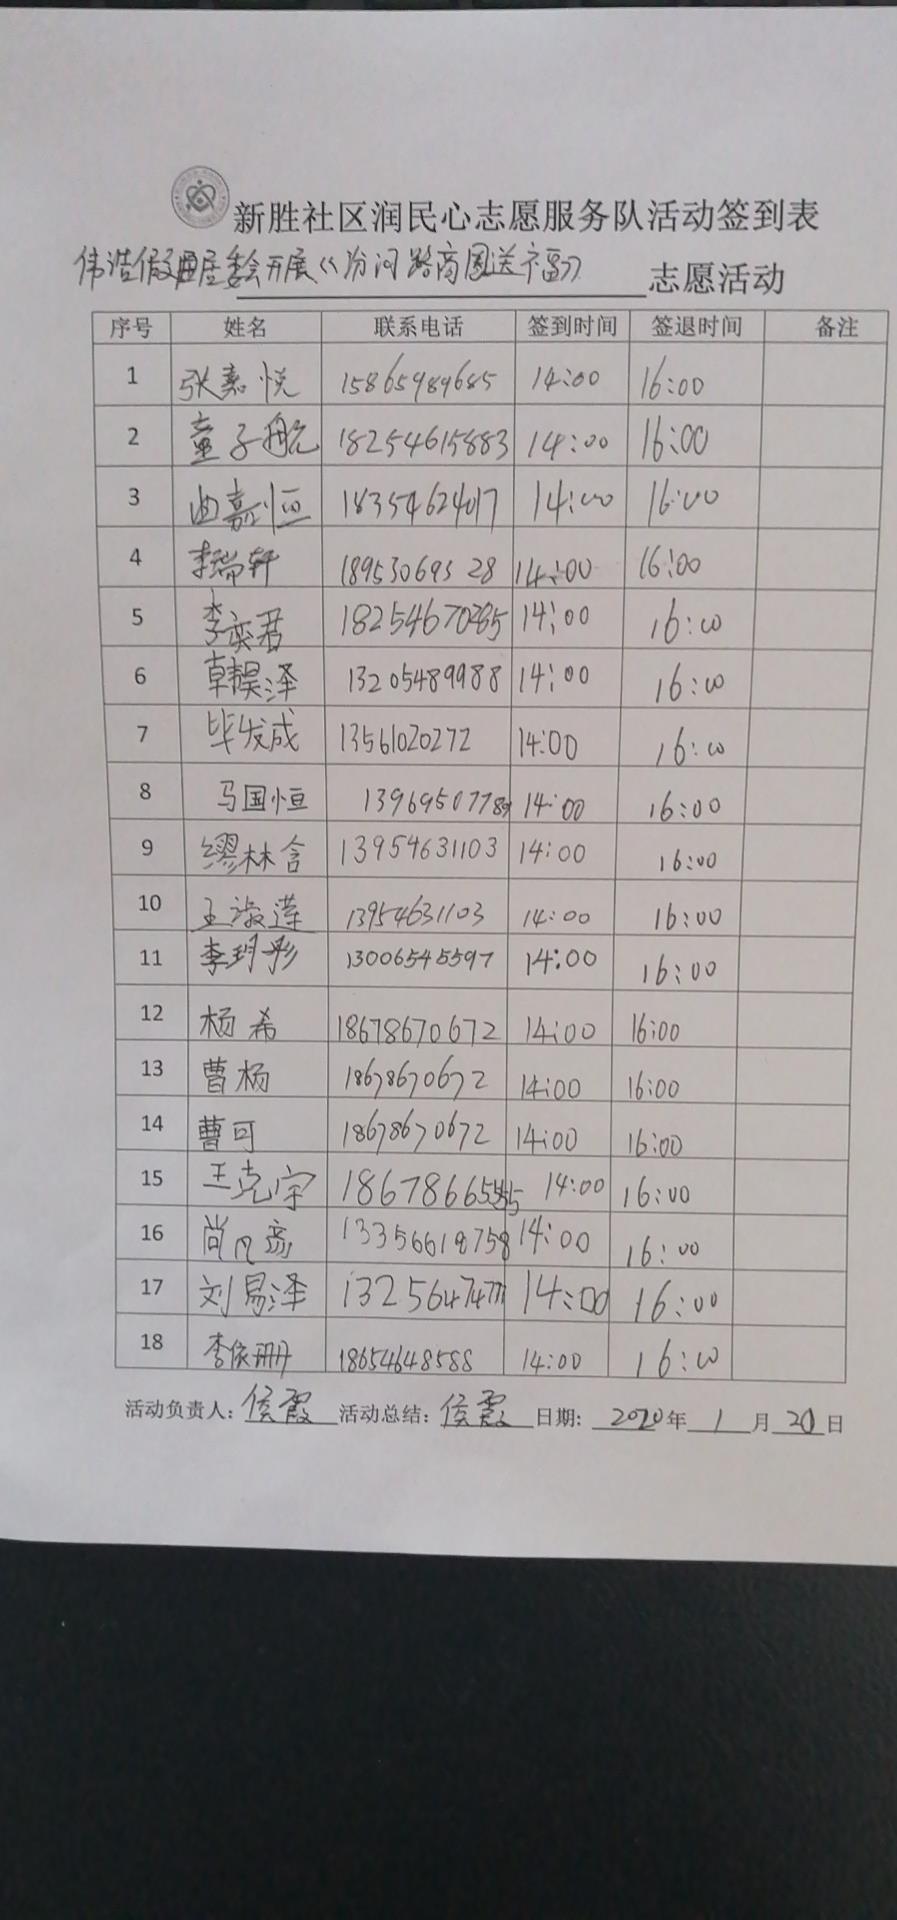 新胜社区润民心志愿服务队活动签到表
居委会开展《汾河路商圈送福》 志愿活动
序号 姓名 联系电话 签到时间 签退时间 备注
1 张嘉悦 15865989685 14:00 16:00
2 童子航 18254615883 14:00 16:00
3 曲嘉恒 18354624017 14:00 16:00
4 李瑞轩 18953069328 14:00 16:00
5 李奕君 14:00 16:00
6 韩昊泽 13205489988 14:00 16:00
7 毕发成 13561020272 14:00 16:00
8 马国恒 14:00 16:00
9 缪林含 13954631103 14:00 16:00
10 王淑莲 13954631103 14:00 16:00
11 李玥彤 13006545597 14:00 16:00
12 杨希 18678670672 14:00 16:00
13 曹杨 18678670672 14:00 16:00
14 曹可 18678670672 14:00 16:00
15 王克宇 14:00 16:00
16 13356618758 14:00 16:00
17 刘易泽 14:00 16:00
18 李依珊 18654648588 14:00 16:00
活动负责人: 侯霞 活动总结: 侯霞 日期: 2020年1月20日